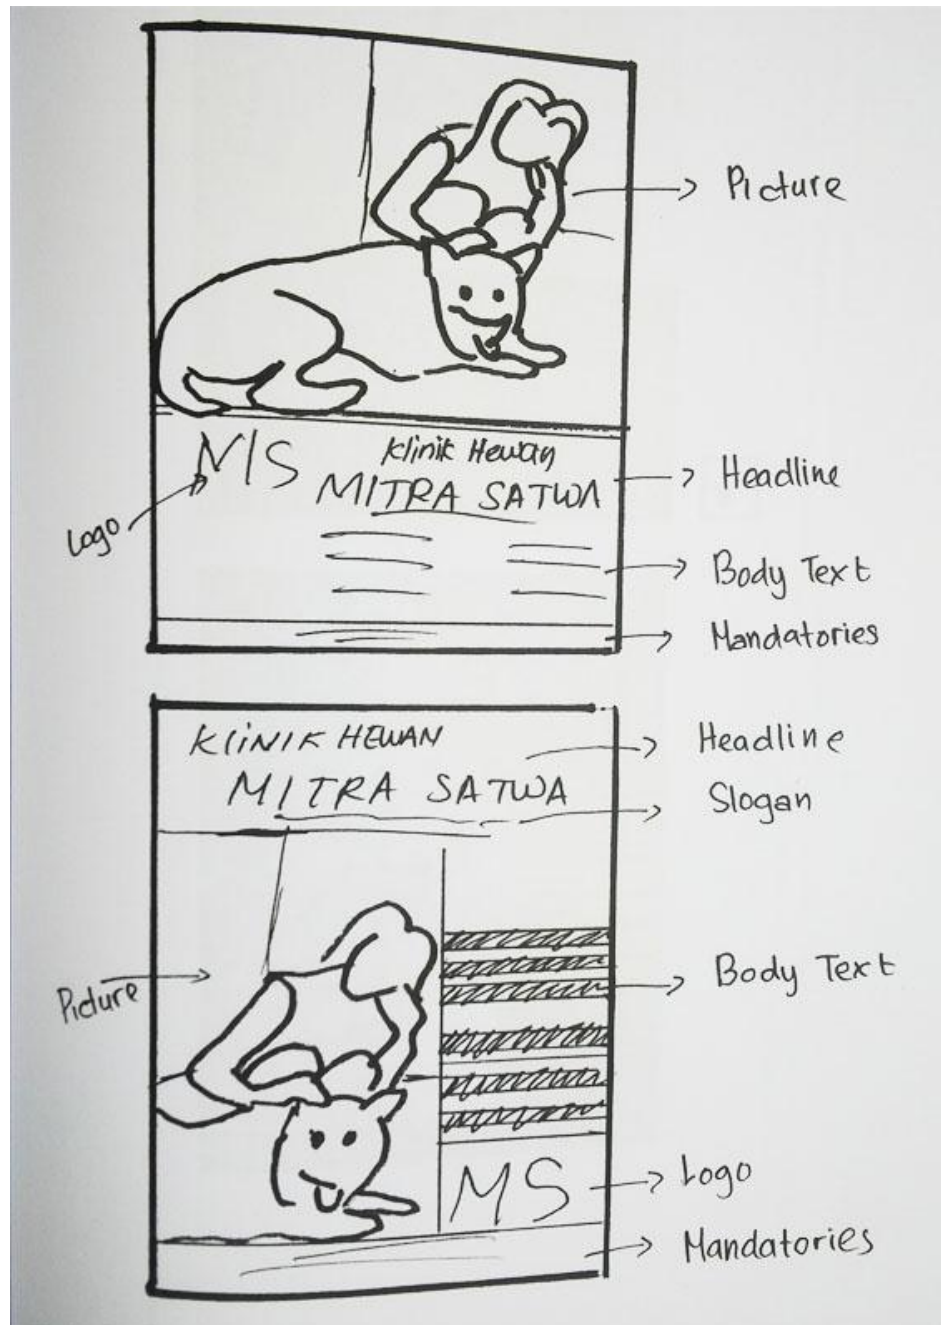 Picture
MS
Klinik Hewan
MITRA SATWA
Headline
Logo
Body Text
Mandatories
KLiNIK HEWAN
MITRA SATWA
Headline
Slogan
Picture
Body Text
MS
Logo
Mandatories